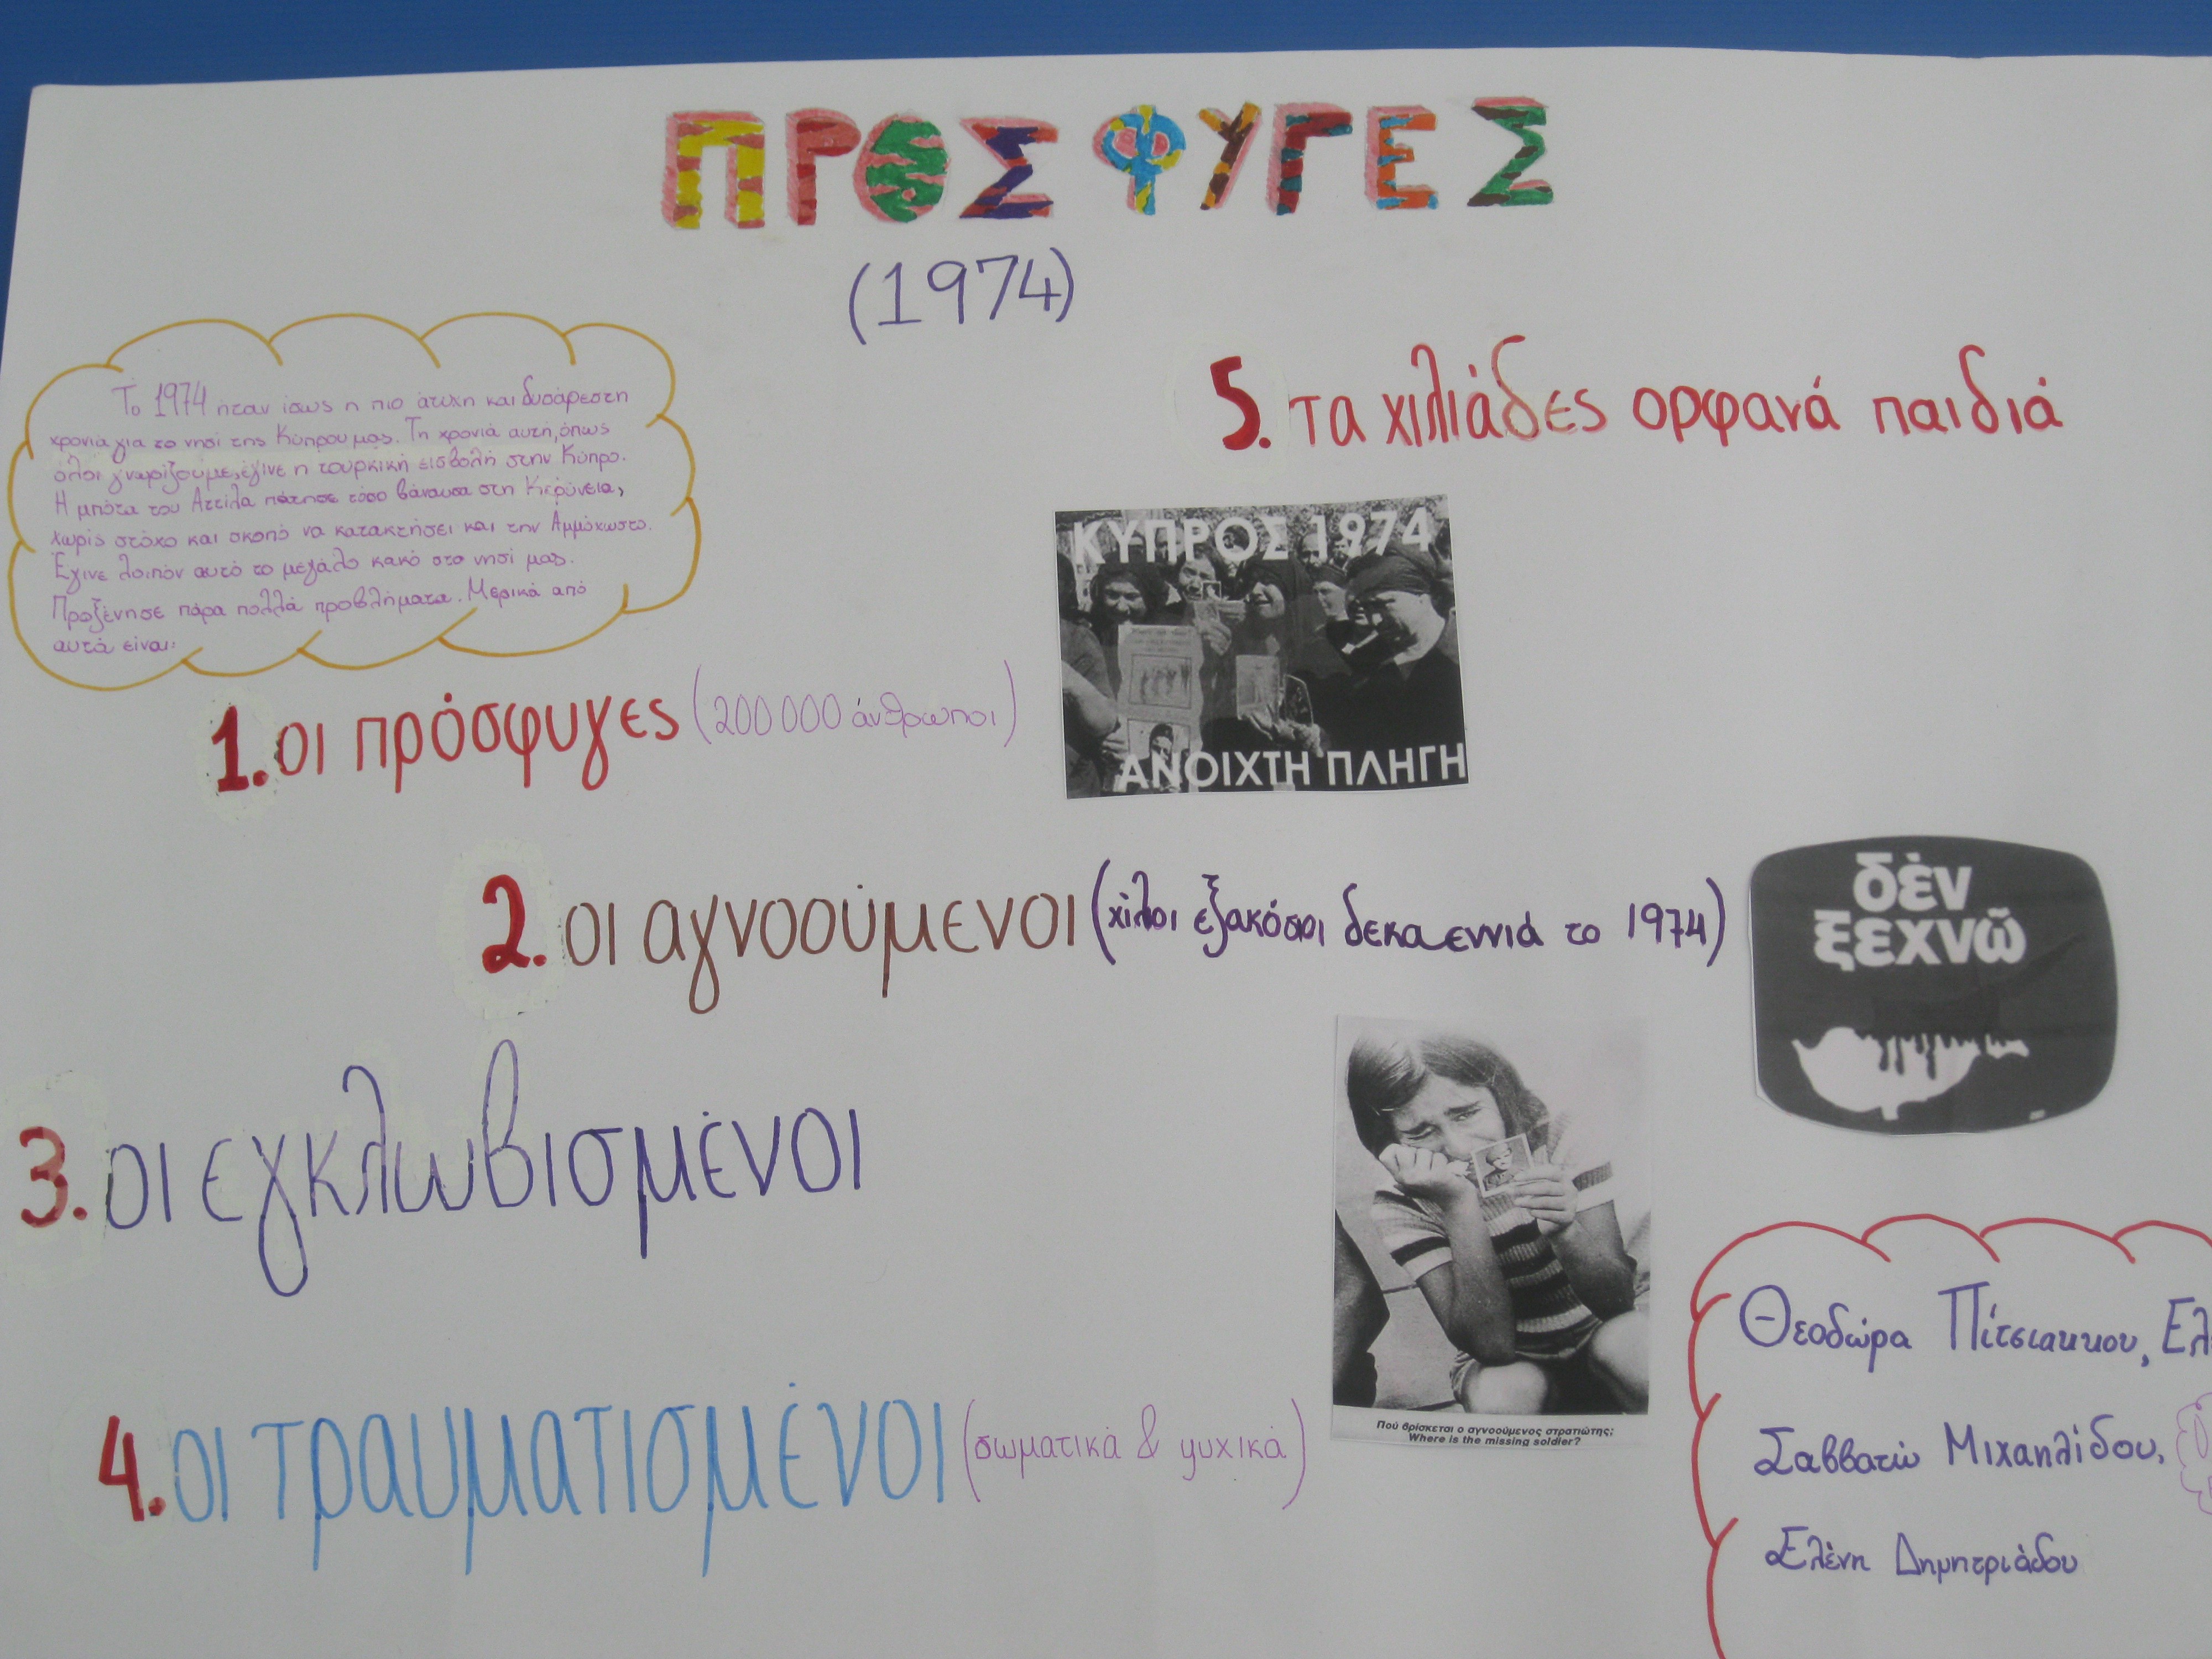 ΠΡΟΣΦΥΓΕΣ
(1974)
Το 1974 ήταν ίσως η πιο άτυχη και δυσάρεστη
χρονιά για το νησί της Κύπρου μας. Τη χρονιά αυτή, όπως
όλοι γνωρίζουμε, έγινε η τουρκική εισβολή στην Κύπρο.
Η μπότα του Αττίλα πάτησε τόσο βάναυσα στη Κερύνεια,
χωρίς στόχο και σκοπό να κατακτήσει και την Αμμόχωστο.
Έγινε λοιπόν αυτό το μεγάλο κακό στο νησί μας.
Προξένησε πάρα πολλά προβλήματα. Μερικά από
αυτά είναι:
1. οι πρόσφυγες (200000 άνθρωποι)
2. οι αγνοούμενοι (χίλοι εξακόσοι δεκαεννιά το 1974)
3. οι εγκλωβισμένοι
4. οι τραυματισμένοι (σωματικά & ψυχικά)
5. τα χιλιάδες ορφανά παιδιά
ΚΥΠΡΟΣ 1974
ΑΝΟΙΧΤΗ ΠΛΗΓΗ
δὲν
ξεχνῶ
Πού βρίσκεται ο αγνοούμενος στρατιώτης;
Where is the missing soldier?
Θεοδώρα Πίτσιακκου, Ελ
Σαββατώ Μιχαηλίδου,
Ελένη Δημητριάδου